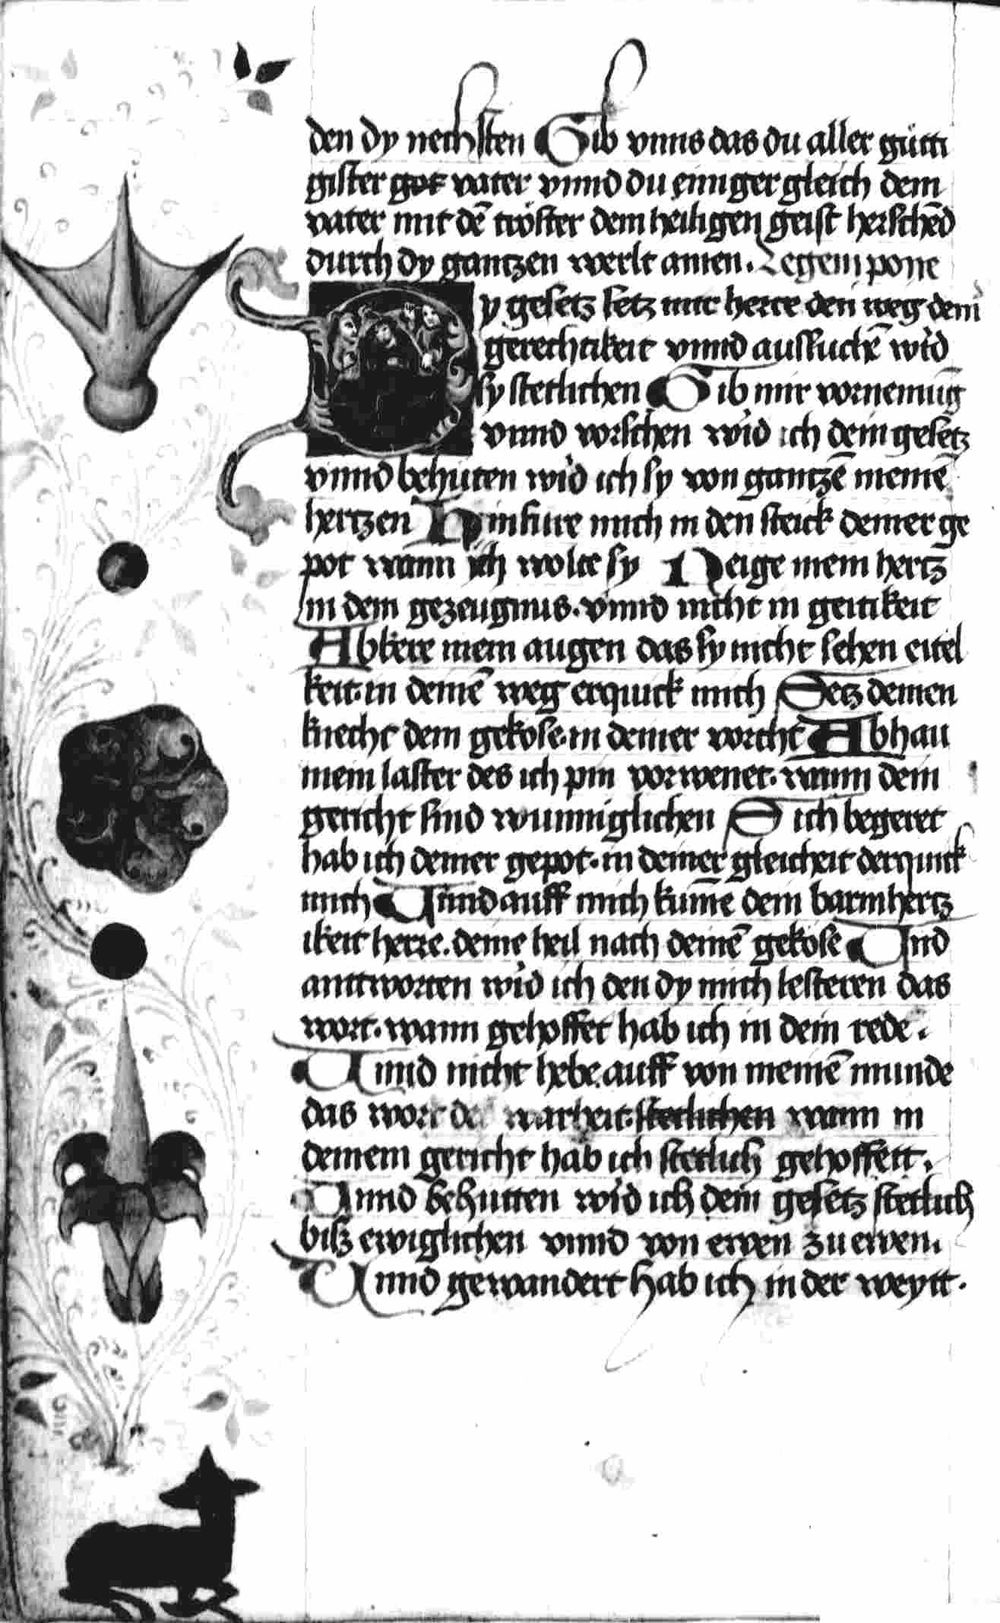 den dy nechsten Gib vnns das du aller gütti
gister got vater vnnd du einiger gleich dem
vater mit dē tröster dem heiligen geist herschēd
durch dy gantzen werlt amen. Legem pone
Dy gesetz setz mir herre den weg deiner
gerechtikeit vnnd aussuchē wid
sy stetlichen Gib mir vornemūg
vnnd vorschen wid ich dein gesetz
vnnd behuten wid ich sy von gantzē meinē
hertzen Hinfure mich in den steick deiner ge
pot wann ich wolte sy Neige mein hertz
in dein gezeugnus. vnnd nicht in geitikeit
Abkere mein augen das sy nicht sehen eitel
keit. in deinē weg erquick mich Setz deinen
knecht dein gekose. in deiner vorcht Abhau
mein laster des ich pin vorwenet. wann dein
gericht sind wunniglichen Sich begeret
hab ich deiner gepot. in deiner gleicheit derquick
mich Vnnd auff mich kume dein barmhertz
ikeit herre. deine heil nach deinē gekose Vnd
anttworten wid ich den dy mich lesteren das
wort. wann gehoffet hab ich in dein rede.
Vnnd nicht hebe auff von meinē munde
das wort der warheit. stetlichen wann in
deinem gericht hab ich stetlich gehoffett.
Vnnd behutten wid ich dein gesetz stetlich
bisz ewiglichen vnnd von ewen zu ewen.
Vnnd gewandert hab ich in der weytt.